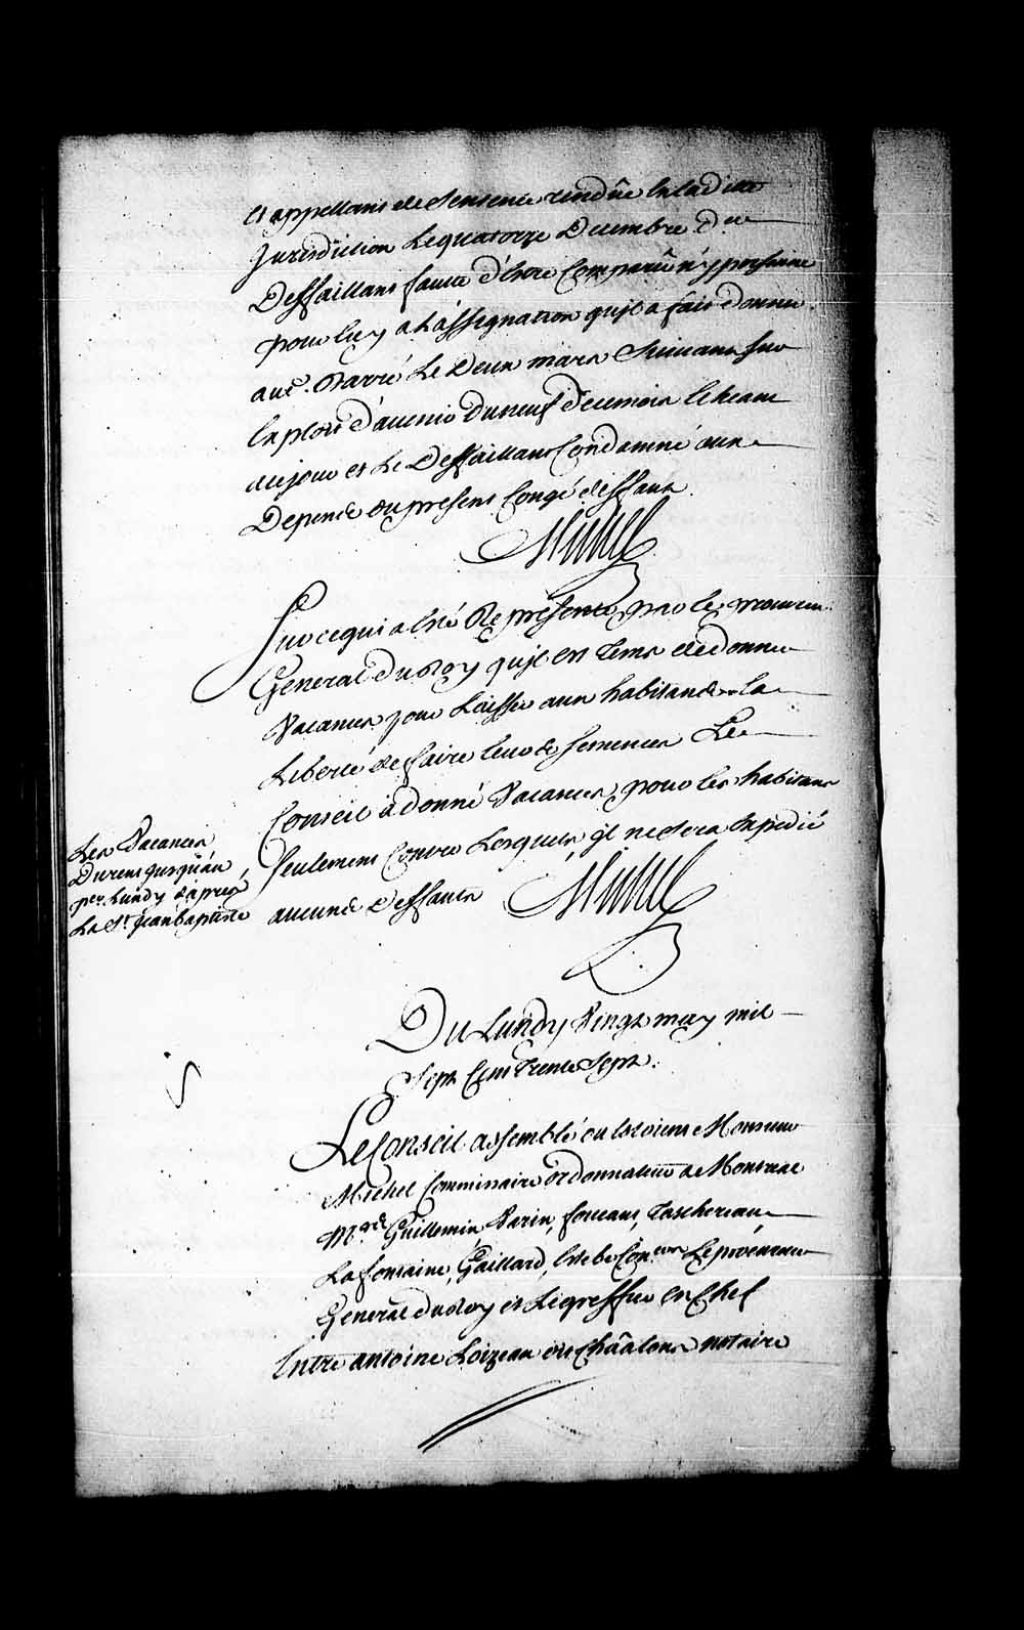 et appellant de Sentence rendûe en ladite
Jurisdiction Le quatorze Decembre der
Deffaillant faute d'estre Comparu ny personne
pour luy a L'assignation qu'il a fait donner
aud. Barré Le Deux mars Suivant sur
Exploit d'avenir du neuf de ce mois lecheant
au jour et Le Deffaillant Condamné aux
Depens du present Congé deffaut.
Michel
Sur ce qui a été Representé par le procureur
General du Roy qu'jl est tems de donner
Vacances pour Laisser aux habitans la
Liberté de faire leurs Semences Le
Conseil a donné Vacances pour les habitans
Seulement Contre Lesquels jl ne Sera Expedié
aucuns Deffauts Michel
Les Vacances
Durent jusqu'au
per. Lundy d'après
La St. Jean baptiste
Du Lundy Vingt may mil
Sept Cent trente Sept.
Le Conseil assemblé ou Estoient Monsieur
Michel Commissaire ordonnateur a Montreal
Mrs. Guillemin, Varin, foucault, taschereau
Lafontaine, Gaillard, Estebe Coners Le procureur
General du Roy et Le greffier En Chef
Entre antoine Loizeau dit Châalons notaire